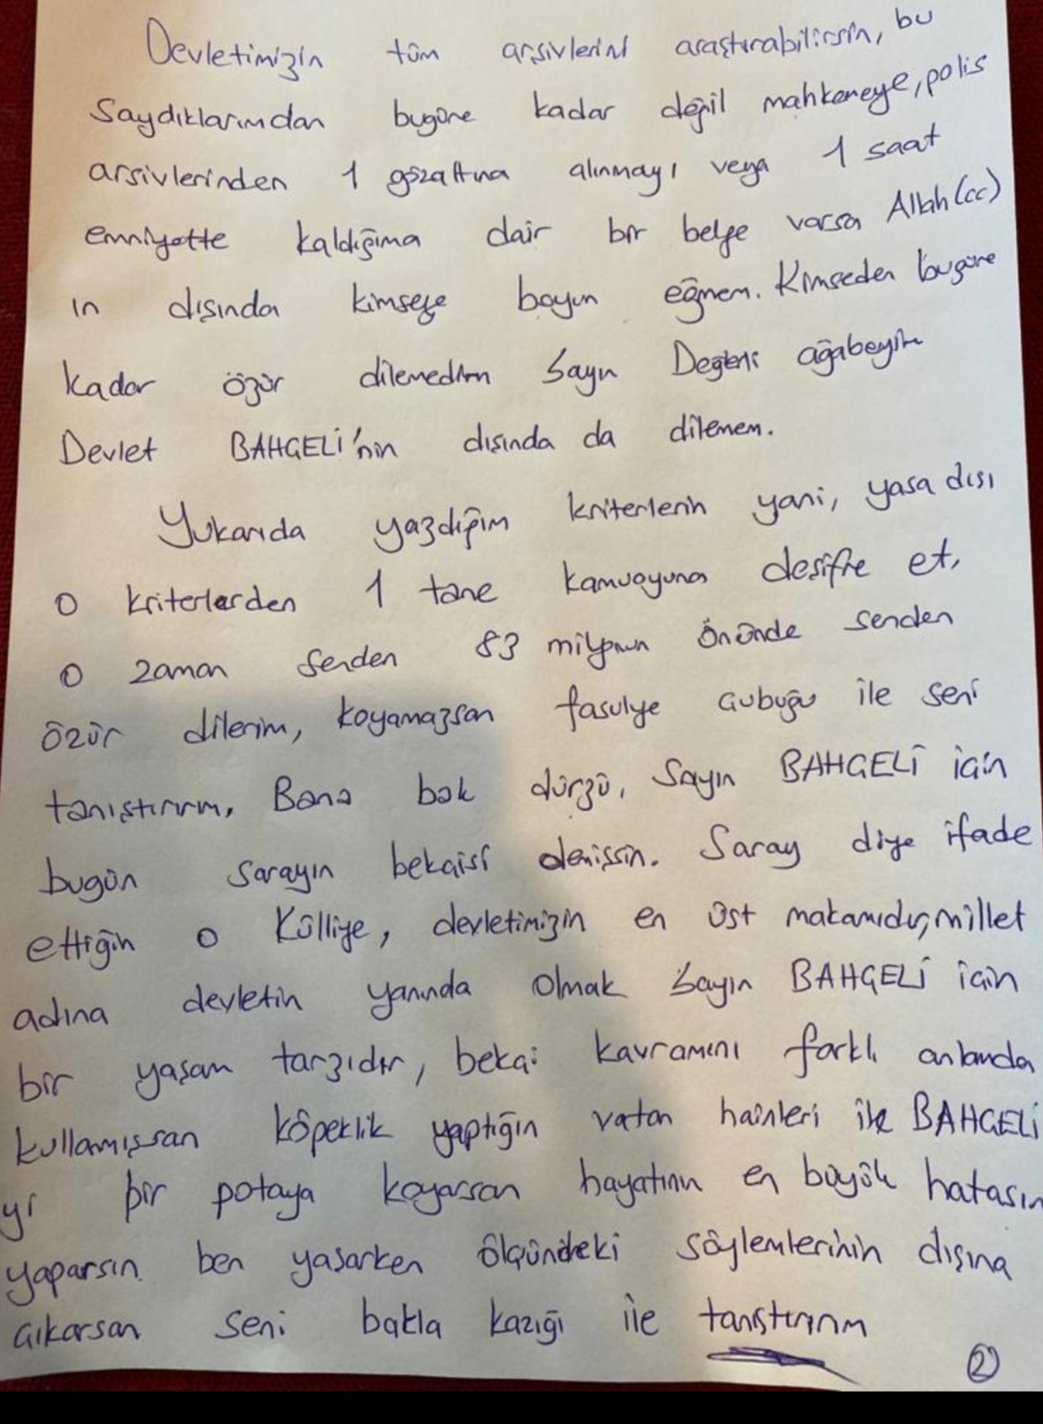 Devletimizin tüm arşivlerini araştırabilirsin, bu
Saydıklarımdan bugüne kadar değil mahkemeye, polis
arsivlerinden 1 gözaltına alınmayı veya 1 saat
emniyette kaldığıma dair bir belge varsa Allah (cc)
ın dışında kimseye boyun eğmem. Kimseden bugüne
kadar özür dilemedim Sayın Değerli ağabeyim
Devlet BAHÇELİ'nin dışında da dilemem.
Yukarıda yazdığım kriterlerin yani, yasa dışı
o kriterlerden 1 tane kamuoyuna desifre et,
o zaman senden 83 milyonun önünde senden
özür dilerim, koyamazsan fasulye çubuğu ile seni
tanıştırırım, Bana bak dürzü, Sayın BAHÇELİ için
bugün sarayın bekçisi demişsin. Saray diye ifade
ettiğin o Külliye, devletimizin en üst makamıdır, millet
adına devletin yanında olmak Sayın BAHÇELİ için
bir yaşam tarzıdır, bekçi kavramını farklı anlamda
kullanmışsan köpeklik yaptığın vatan hainleri ile BAHÇELİ
yi bir potaya koyarsan hayatının en büyük hatasın
yaparsın ben yaşarken ölçündeki söylemlerinin dışına
çıkarsan seni bakla kazığı ile tanıştırırım
2